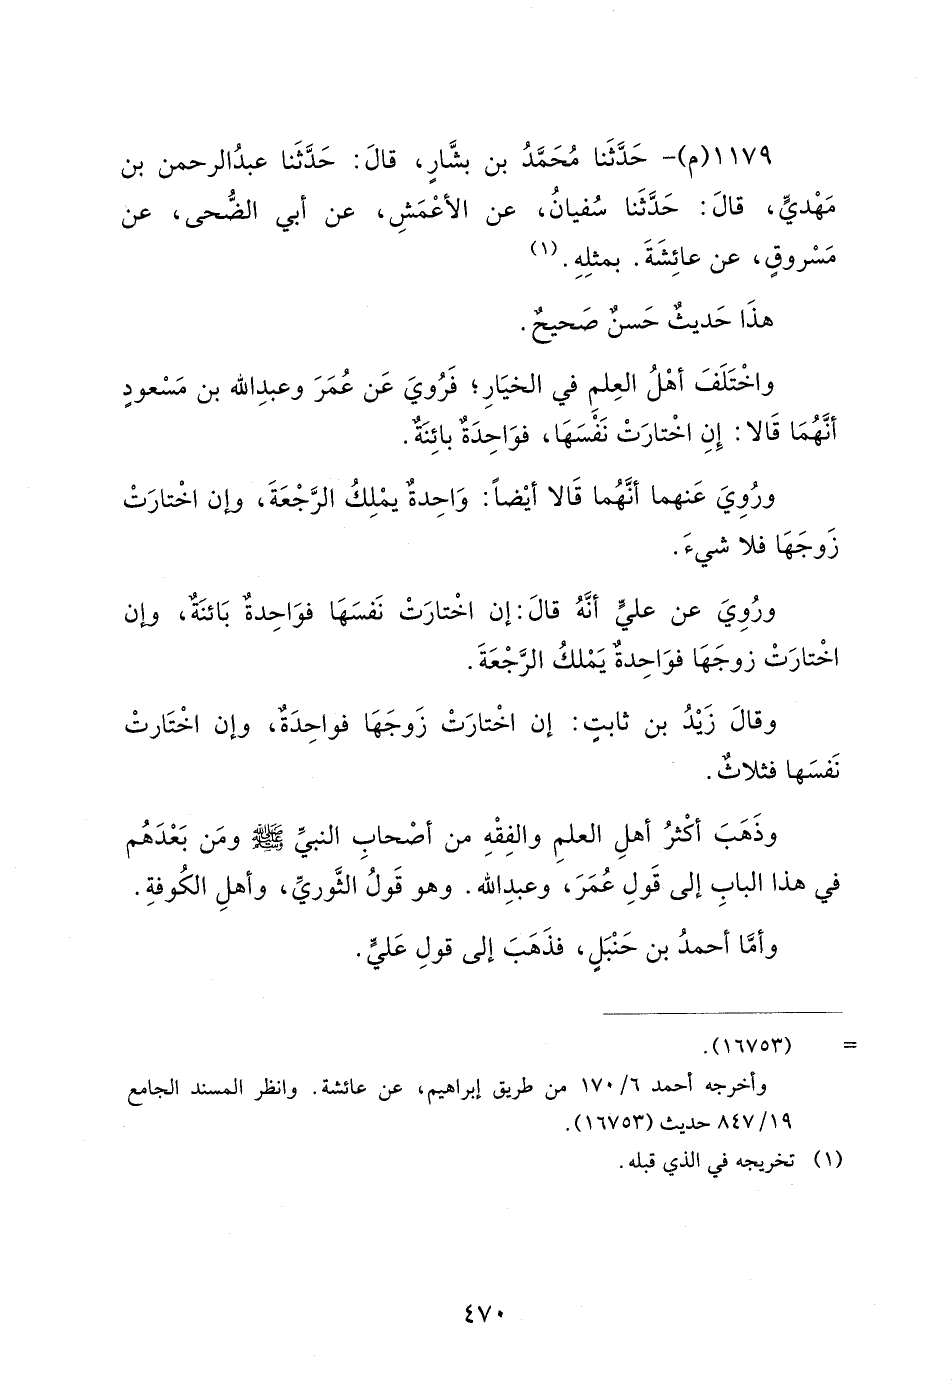 ١١٧٩(م)- حَدَّثَنا مُحَمَّدُ بن بشَّارٍ، قالَ: حَدَّثَنا عبدُالرحمن بن
مَهْديٍّ، قالَ: حَدَّثَنا سُفيانُ، عن الأعْمَشِ، عن أبي الضُّحى، عن
مَسْروقٍ، عن عائِشَةَ. بمثلِهِ.(١)
هذَا حَديثٌ حَسنٌ صَحيحٌ.
واخْتَلَفَ أهْلُ العِلمِ في الخيَارِ؛ فَرُويَ عَن عُمَرَ وعبدِالله بن مَسْعودٍ
أنَّهُمَا قَالا: إنِ اخْتارَتْ نَفْسَهَا، فوَاحِدَةٌ بائِنَةٌ.
ورُوِيَ عَنهما أنَّهُما قَالا أيْضاً: وَاحِدةٌ يمْلِكُ الرَّجْعَةَ، وإن اخْتارَتْ
زَوجَهَا فلا شيءَ.
ورُوِيَ عن عليٍّ أنَّهُ قالَ:إن اخْتارَتْ نَفسَهَا فوَاحِدةٌ بَائنَةٌ، وإن
اخْتارَتْ زوجَهَا فوَاحِدةٌ يَمْلكُ الرَّجْعَةَ.
وقالَ زَيْدُ بن ثابتٍ: إن اخْتارَتْ زَوجَهَا فواحِدَةٌ، وإن اخْتَارتْ
نَفسَها فثلاثٌ.
وذَهَبَ أكْثرُ أهلِ العلمِ والفِقْهِ من أصْحابِ النبيِّ ﷺ ومَن بَعْدَهُم
في هذا البابِ إلى قَولِ عُمَرَ، وعبدِالله. وهو قَولُ الثَّوريِّ، وأهلِ الكُوفةِ.
وأمَّا أحمدُ بن حَنْبَلٍ، فذَهَبَ إلى قولِ عَليٍّ.
= (١٦٧٥٣).
وأخرجه أحمد ٦/ ١٧٠ من طريق إبراهيم، عن عائشة. وانظر المسند الجامع
١٩/ ٨٤٧ حديث (١٦٧٥٣).
(١) تخريجه في الذي قبله.
٤٧٠